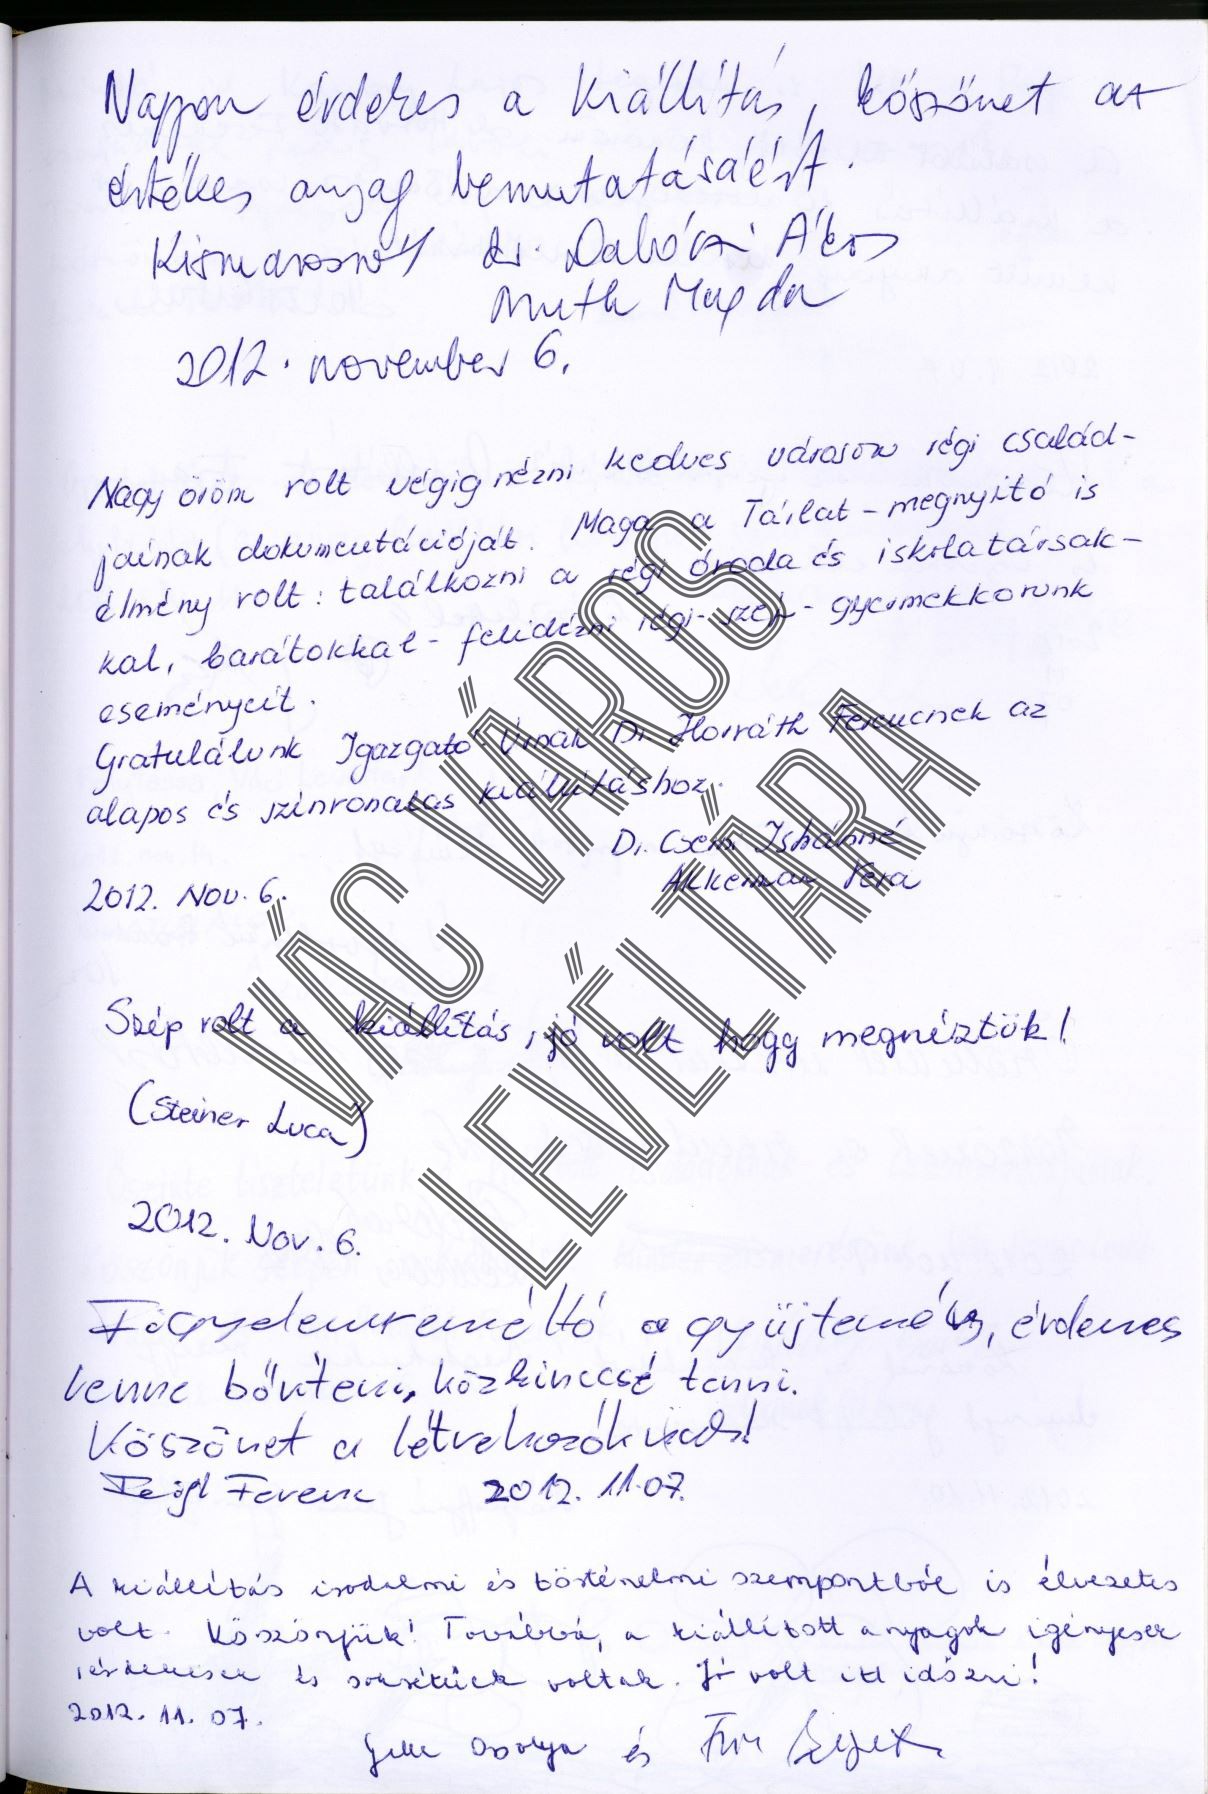 Nagyon érdekes a kiállítás, köszönet az
értékes anyag bemutatásáért.
Kismarosról dr. Dabóczi Ákos
Muth Magda
2012. november 6.
Nagy öröm volt végignézni kedves városom régi család-
jainak dokumentációját. Maga a Tárlat-megnyitó is
élmény volt: találkozni a régi óvoda és iskolatársak-
kal, barátokkal - felidézni régi- szép- gyermekkorunk
eseményeit.
Gratulálunk Igazgató Úrnak Dr. Horváth Ferencnek az
alapos és színvonalas kiállításhoz.
Dr. Istvánné
Akkerman Vera
2012. Nov. 6.
Szép volt a kiállítás, jó volt hogy megnéztük!
(Steiner Luca)
2012. Nov. 6.
Figyelemreméltó a gyűjtemény, érdemes
lenne bővíteni, közkinccsé tenni.
Köszönet a létrehozóknak!
Feigl Ferenc 2012. 11.07.
A kiállítás irodalmi és történelmi szempontból is élvezetes
volt. Köszönjük! Továbbá, a kiállított anyagok igényesek
, érdekesek és sokrétűek voltak. Jó volt itt időzni!
2012. 11. 07.
Orsolya és
VÁC VÁROS
LEVÉLTÁRA